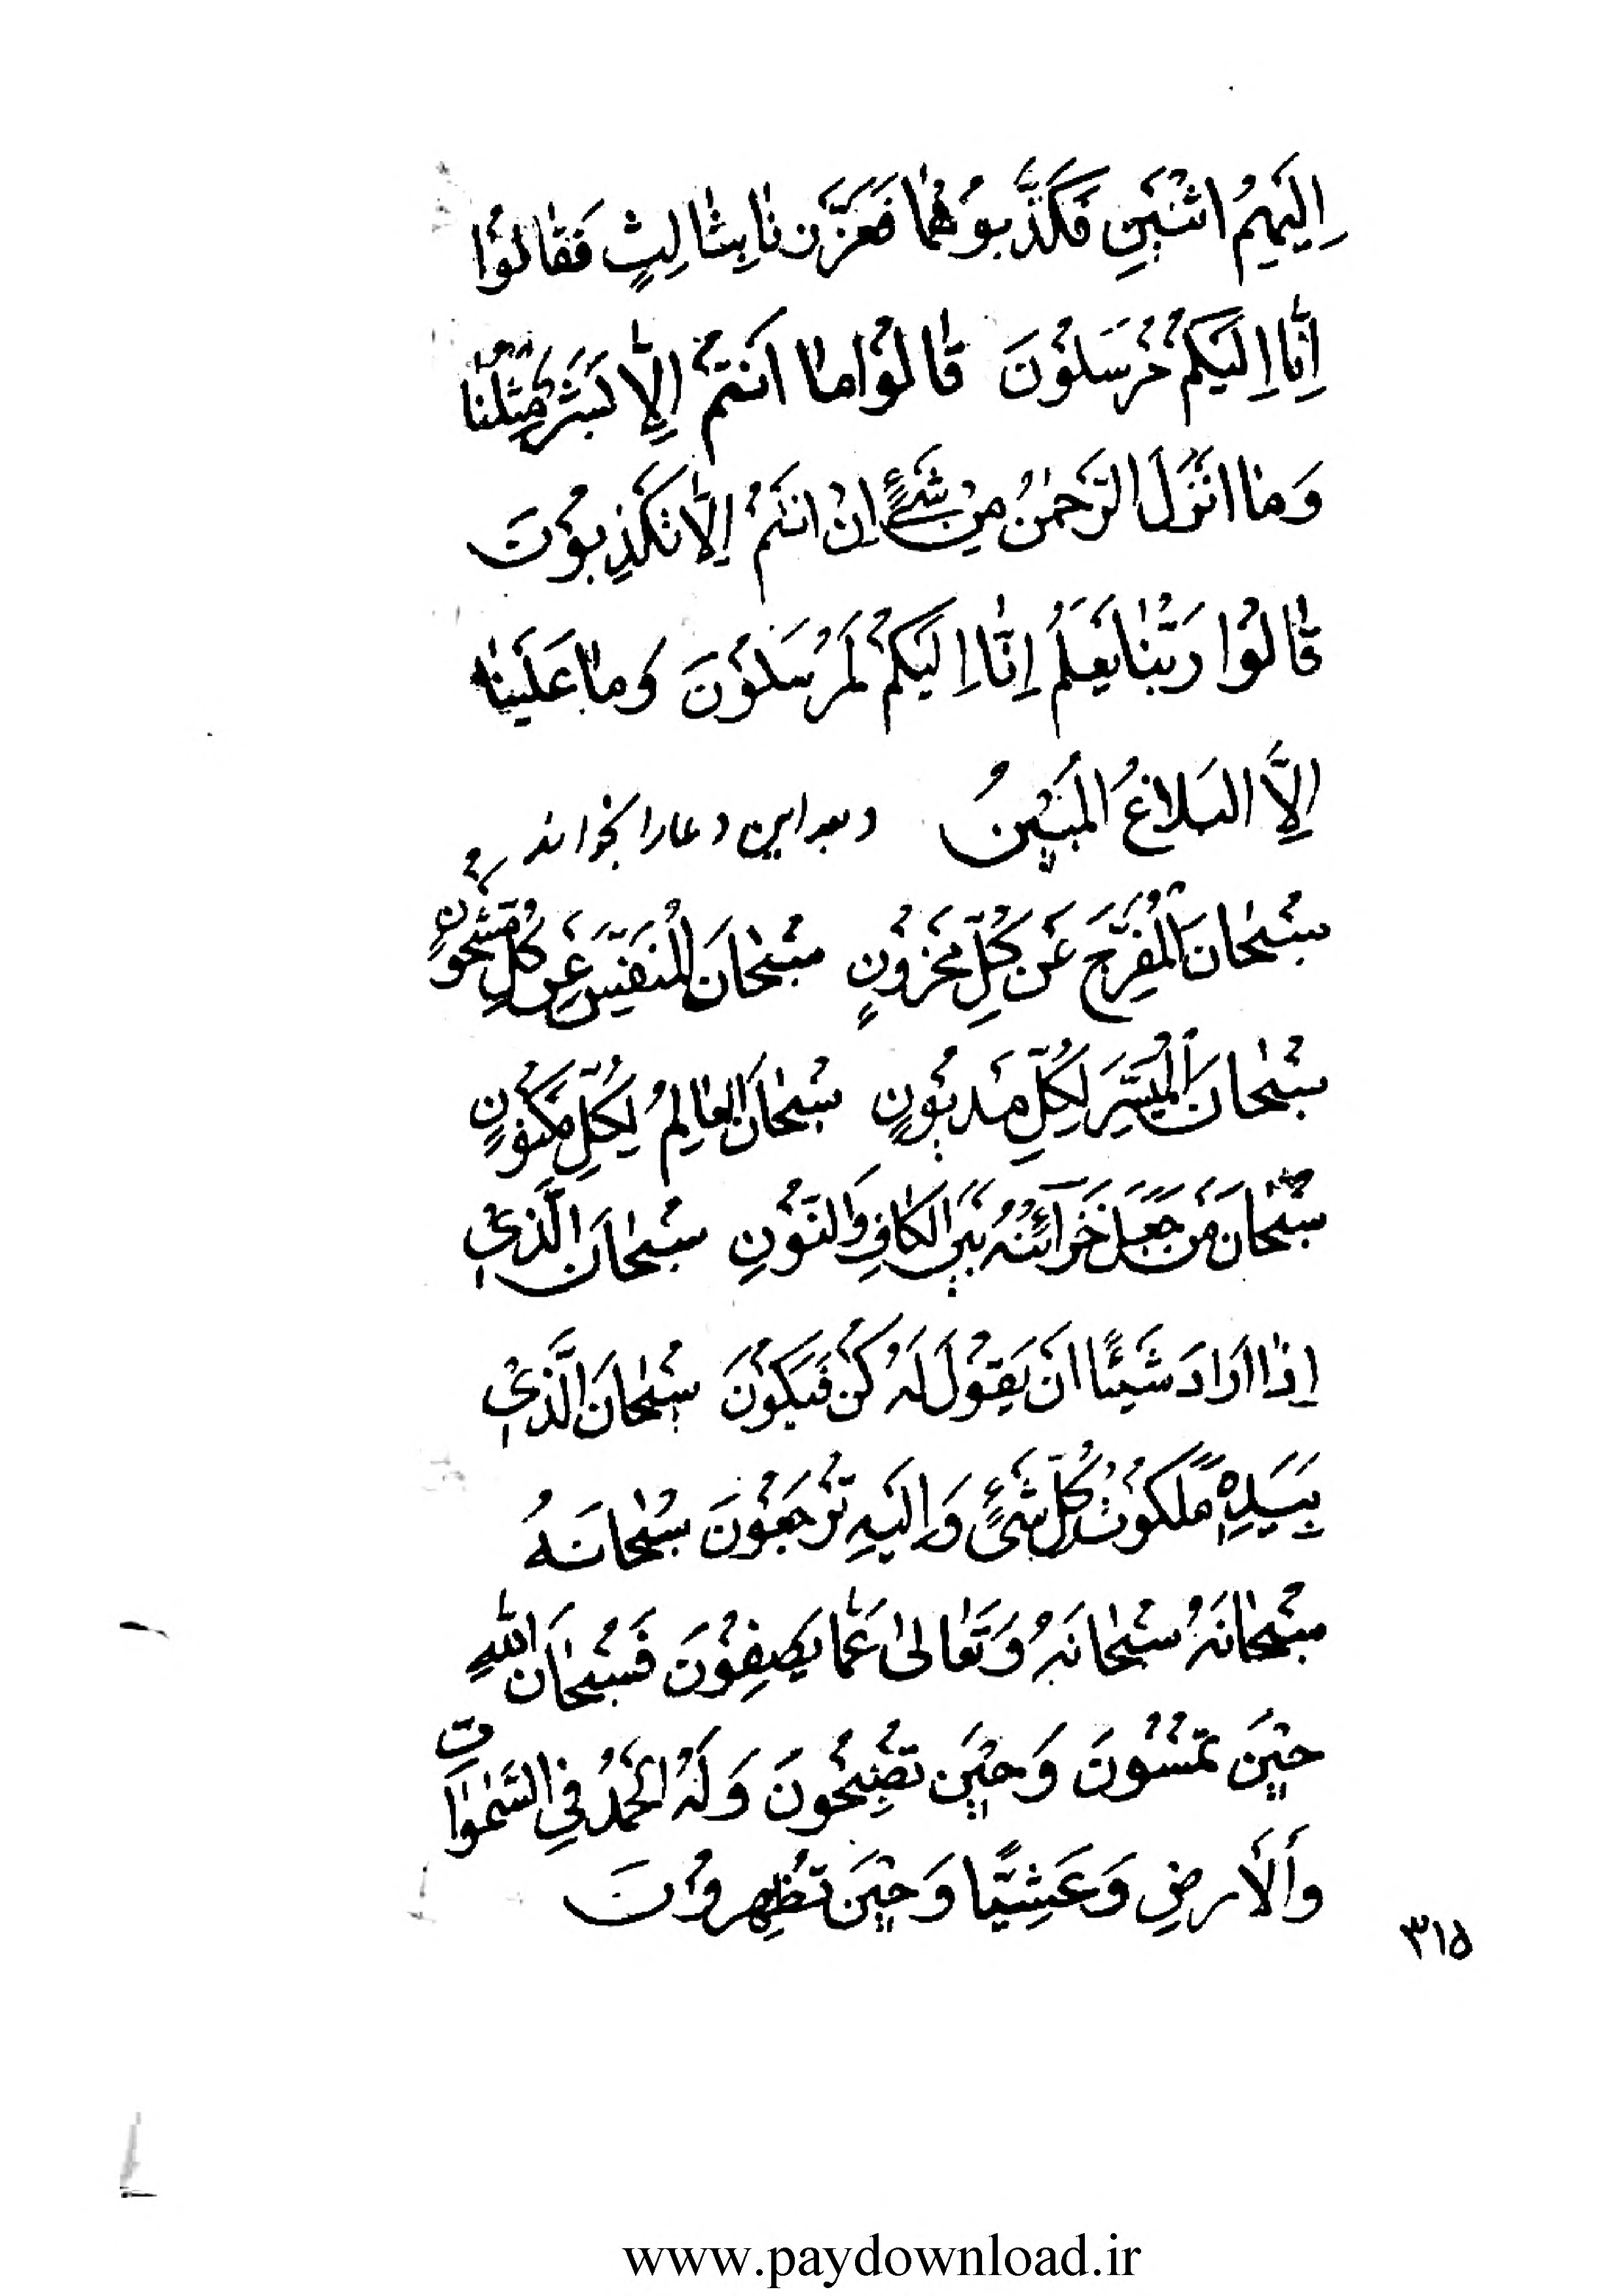 اِلَيْهِمُ اثْنَيْنِ فَكَذَّبُوهُمٰا فَعَزَّزْنٰا بِثٰالِثٍ فَقٰالُوْا
اِنّٰا اِلَيْكُمْ مُرْسَلُوْنَ قٰالُوْا مٰا اَنْتُمْ اِلّٰا بَشَرٌ مِثْلُنٰا
وَمٰا اَنْزَلَ الرَّحْمٰنُ مِنْ شَیْءٍ اِنْ اَنْتُمْ اِلّٰا تَكْذِبُوْنَ
قٰالُوْا رَبُّنٰا يَعْلَمُ اِنّٰا اِلَيْكُمْ لَمُرْسَلُوْنَ وَمٰا عَلَيْنٰا
اِلَّا الْبَلَاغُ الْمُبِيْنُ وبعد این دعا را بخواند
سُبْحٰانَ الْمُفَرِّجِ عَنْ كُلِّ مَحْزُوْنٍ سُبْحٰانَ الْمُنَفِّسِ عَنْ كُلِّ مَسْجُوْنٍ
سُبْحٰانَ الْمُيَسِّرِ لِكُلِّ مَدْيُوْنٍ سُبْحٰانَ الْعٰالِمُ لِكُلِّ مَكْنُوْنٍ
سُبْحٰانَ مَنْ جَعَلَ خَزَآئِنُهُ بَيْنَ الْكٰافِ وَالنُّوْنِ سُبْحٰانَ الَّذِيْ
اِذٰا اَرٰادَ شَيْئًا اَنْ يَقُوْلَ لَهُ كُنْ فَيَكُوْنَ سُبْحٰانَ الَّذِيْ
بِيَدِهِ مَلَكُوْتُ كُلِّ شَیْءٍ وَاِلَيْهِ تُرْجَعُوْنَ سُبْحٰانَهُ
سُبْحٰانَهُ سُبْحٰانَهُ وَتَعٰالىٰ عَمّٰا يَصِفُوْنَ فَسُبْحٰانَ اللهِ
حِيْنَ تُمْسُوْنَ وَحِيْنَ تُصْبِحُوْنَ وَلَهُ الْحَمْدُ فِي السَّمٰوٰاتِ
وَالْاَرْضِ وَعَشِيًّا وَحِيْنَ تُظْهِرُوْنَ
۳۱۵
www.paydownload.ir